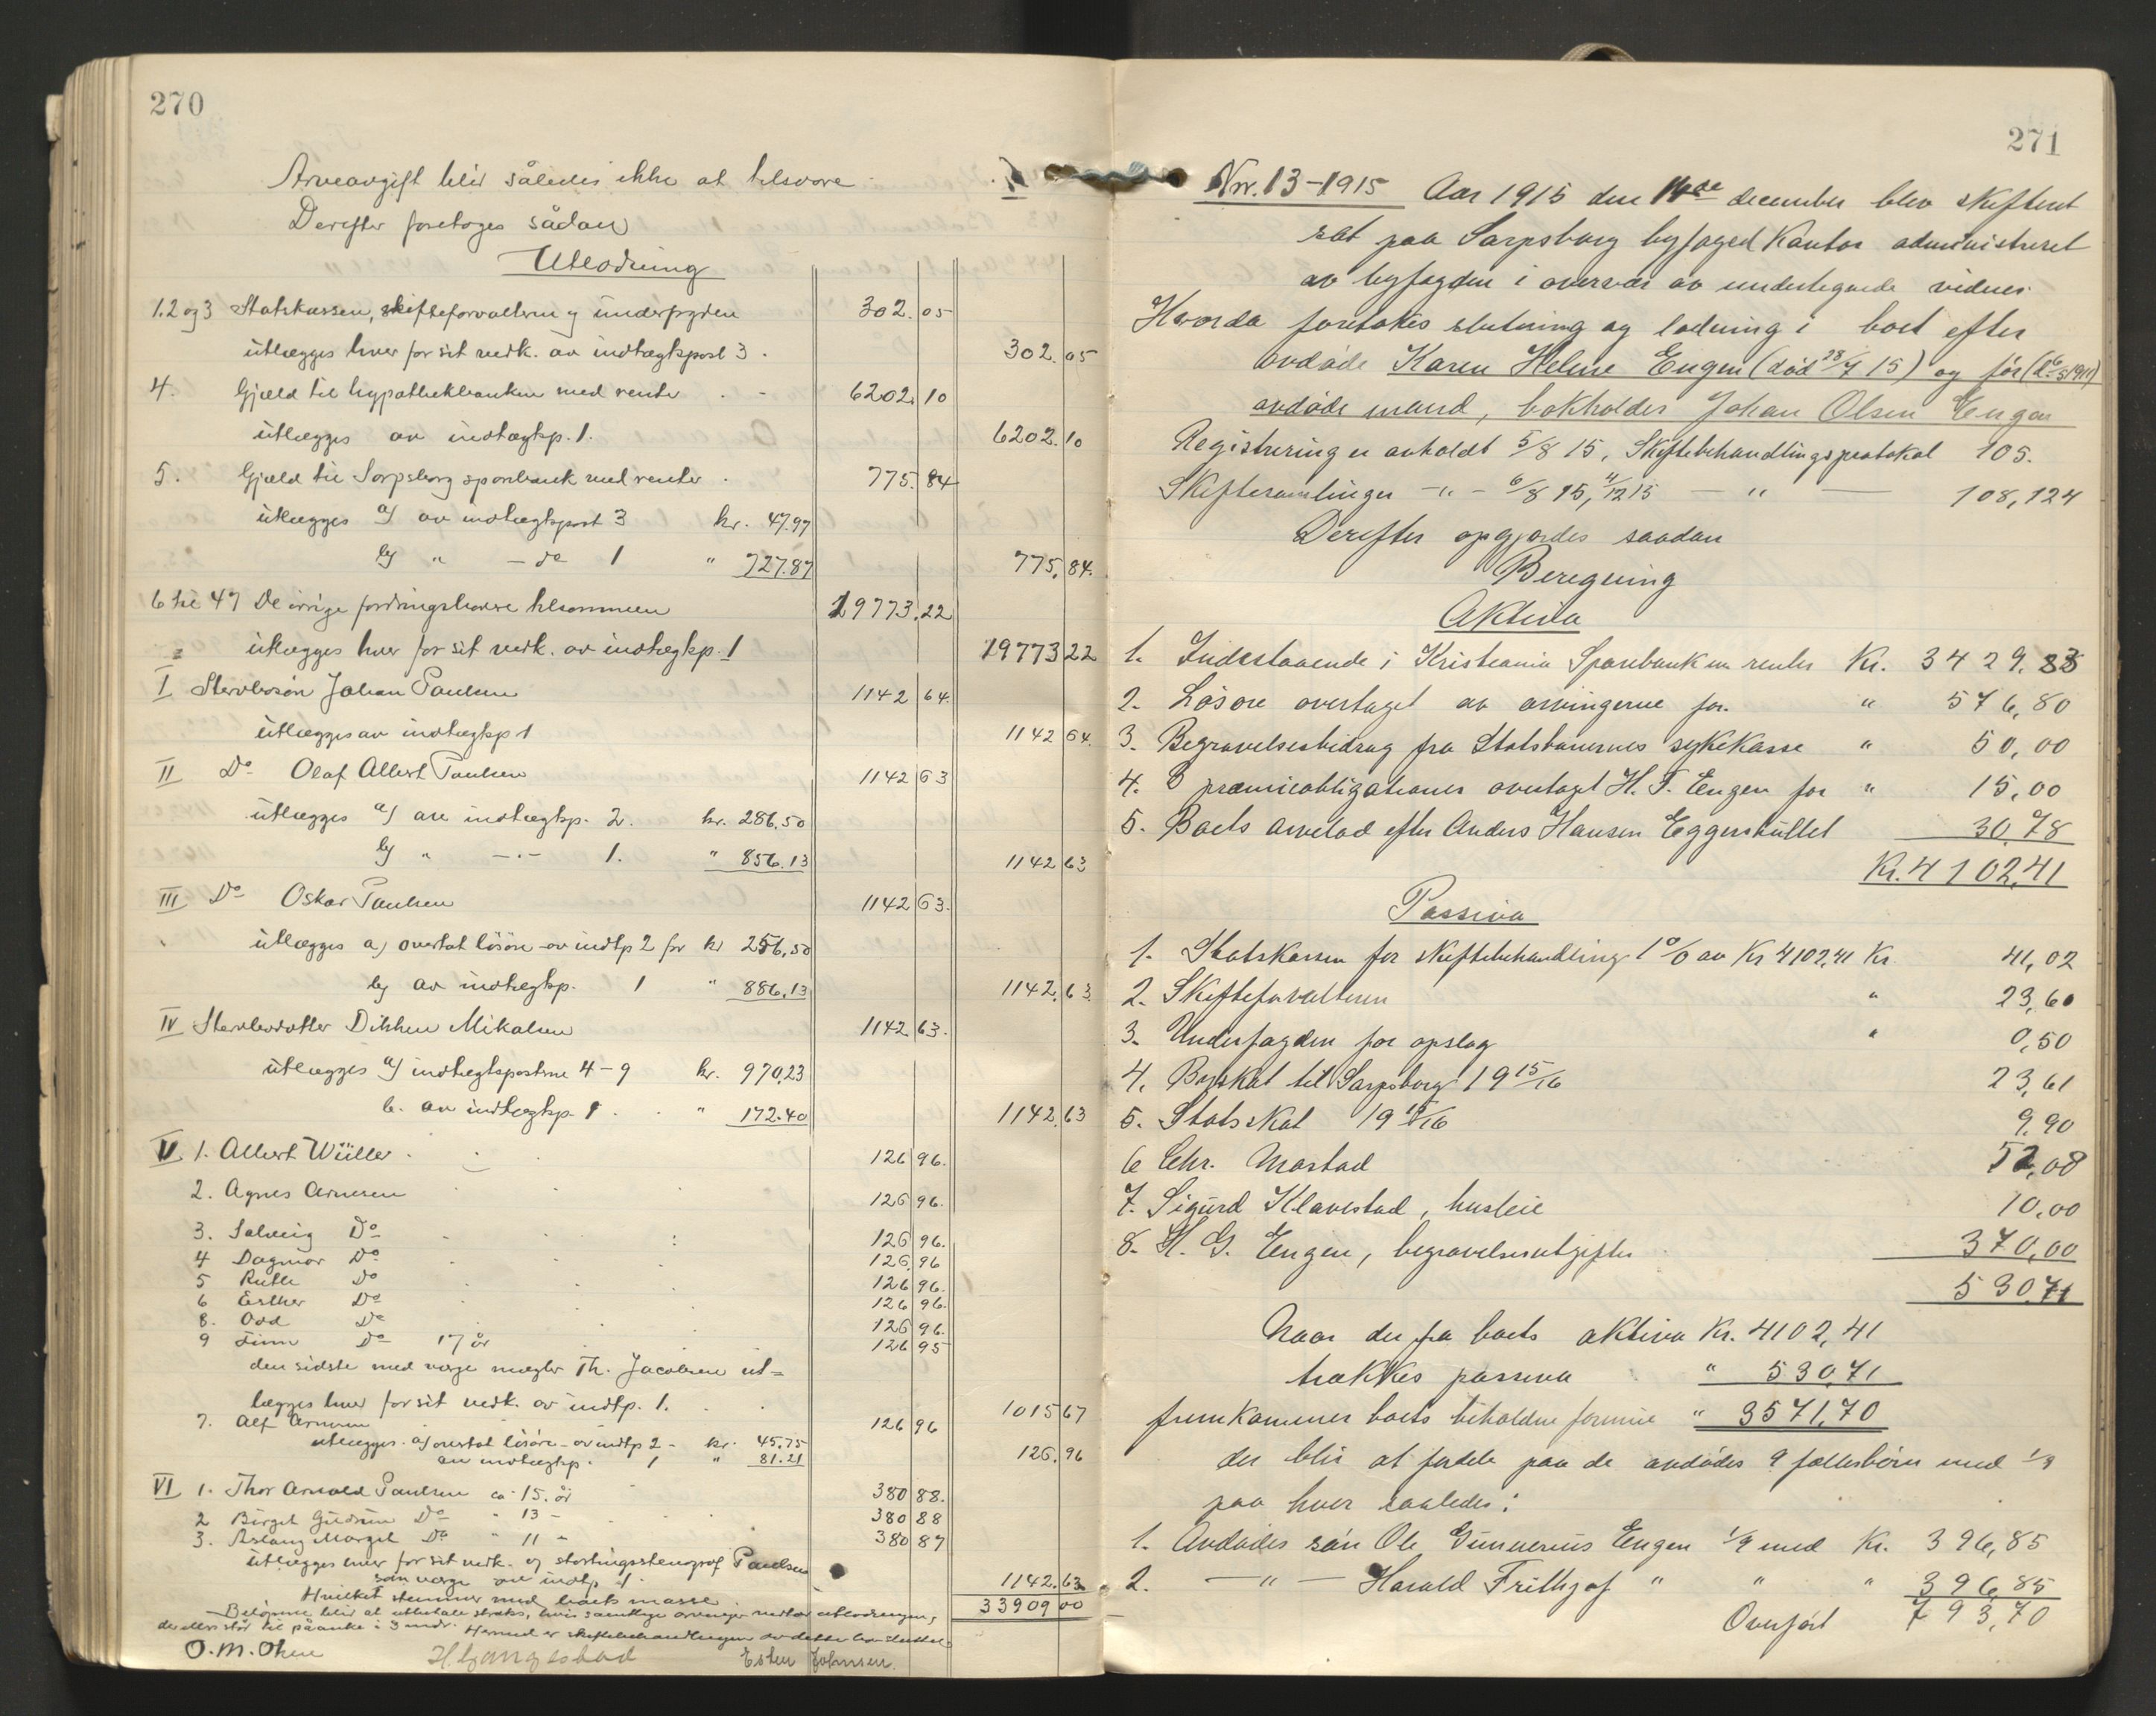 270
Arveavgift blir således ikke at tilsvare
Derefter foretoges sådan
Utlodning
1.2 og 3 Statskassen, skifteforvalteren og underfogden 302.05
utlægges hver for sit vedk. av indtægtspost 3. 302.05
4. Gjæld til hypothekbanken med rente 6202.10
utlægges av indtægtsp. 1. 6202.10
5. Gjæld til Sarpsborg sparebank med renter. 775.84
utlægges a) av indtægtspost 3 kr. 47.97
b) " - do 1 " 727.87 775,84.
6 til 47 De øvrige fordringshavere tilsammen 19773.22
utlægges hver for sit vedk. av indtægtsp. 1 19773 22
I Stervbosøn Johan Paulsen 1142 64.
utlægges av indtægtsp 1 1142 64.
II Do Olaf Albert Paulsen 1142 63
utlægges a) av indtægtsp. 2. kr. 286,50
b) " -"- 1. " 856.13 1142 63
III Do Oskar Paulsen 1142 63.
utlægges a) overtat løsøre av indtp 2 for kr 256,50
b) av indtægtsp. 1 " 886,13 1142.63
IV Stervbodatter Dikken Mikalsen 1142 63.
utlægges a) indtægtsposterne 4-9 kr. 970,23
b. av indtægtsp. 1. " 172.40 1142,63
V. 1. Albert Wüller. 126 96.
2. Agnes Arnesen 126 96.
3. Solveig Do 126 96.
4 Dagmar Do 126.96
5 Ruth Do 126 96.
6 Esther Do 126 96.
8. Odd Do 126 96.
9 Finn Do 17 år 126 95
den sidste med verge mægler Th. Jacobsen ut=
lægges hver for sit vedk. av indtp. 1. 1015 67
7. Alf Arnesen 126 96
utlægges a) overtat løsøre - av indtp 2 - kr. 45.75
av indtægtsp. 1 " 81.21 126.96
VI 1. Thor Arnold Paulsen ca 15. år 380 88.
2 Birgit Gudrun Do " 13 - 380 88
3. Aslaug Margit Do " 11 - 380 87
utlægges hver for sit vedk. og stortingsstenograf Paulsen
som verge av indtp 1. 1142.63
Hvilket stemmer med boets masse. 33909 00
Beløpene blir at utbetale straks, hvis samtlige arvinger vedtar utlodningen,
der ellers står til påanke i 3 mdr. Hermed er skiftebehandlingen av dette bo sluttet.
O. M. Olsen H. Langestad Esten Johnsen.
271
Nr. 13-1915 Aar 1915 den 14de december blev skifteret
sat paa Sarpsborg byfoged Kontor administreret
av byfogden i overvær av undertegnede vidner.
Hvorda foretokes slutning og lodning i boet efter
avdøde Karen Helene Engen (død 28/7 15) og før (d. 6/5 1911)
avdøde mand, bokholder Johan Olsen Engen
Registrering er avholdt 5/8 15, Skiftebehandlingsprotokol 105.
Skiftesamlinger -"- 6/8 15, 11/12 15 - " - 108, 124
Derefter opgjordes saadan
Beregning
Aktiva
1. Indestaaende i Kristiania Sparebank m renter Kr. 3429.83
2. Løsøre overtaget av arvingerne for. " 576,80
3. Begravelsesbidrag fra Statsbanernes sykekasse " 50,00
4. 3 præmieobligationer overtaget H. F. Engen for " 15,00
5. Boets arvelod efter Anders Hansen Eggershullet 30,78
Kr. 4102,41
Passiva
1. Statskassen for skiftebehandling 1 % av Kr 4102,41 Kr. 41,02
2. Skifteforvalteren " 23,60
3. Underfogden for opslag " 0,50
4. Byskat til Sarpsborg 1915/16 23,61
5. Statsskat 1915/16 9,90
6 Chr. Mostad 52,08
7. Sigurd Klavestad, husleie 10,00
8. H. G. Engen, begravelsesutgifter 370,00
530,71
Naar der fra boets aktiva Kr. 4102,41
trækkes passiva " 530,71
fremkommer boets beholdne formue " 3571,70
der blir at fordele paa de avdødes 9 fællesbørn med 1/9
paa hver saaledes:
1. Avdødes søn Ole Gunnerius Engen 1/9 med Kr. 396,85
2. -"- Harald Frithjof " " " 396,85
Overført 793,70